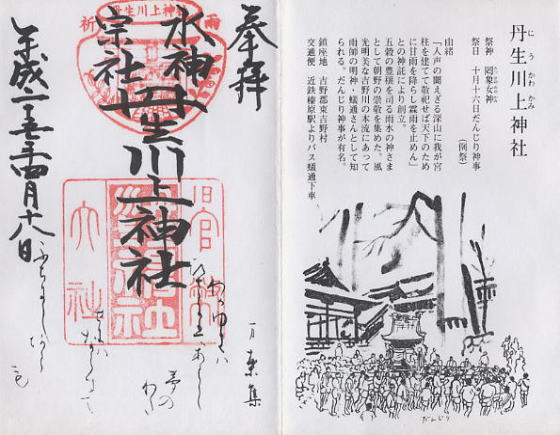 丹生川上神社
にうかわかみ
祭神 罔象女神
祭日 十月十六日だんじり神事
(例祭)
由緒
「人声の聞えざる深山に我が宮
柱を建てて敬祀せば天下のため
に甘雨を降らし霖雨を止めん」
との神託により創立。
五穀の豊穣を司る雨水の神さま
として朝野の崇敬を集めた。風
光明美な吉野川の本流にあって
雨師の明神・蟻通さんとして知
られる。だんじり神事が有名。
鎮座地 吉野郡東吉野村
交通便 近鉄榛原駅よりバス蟻通下車
だんじり
奉拝
水神
宗社
丹生川上神社
平成十五年四月十八日
丹生川上神社
雨
祈
旧官幣
大社
万葉集